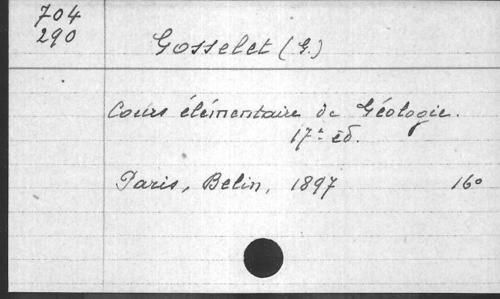 704
290
Gosselet (G.)
Cours élémentaire de Géologie.
17e éd.
Paris, Belin, 1897 16º